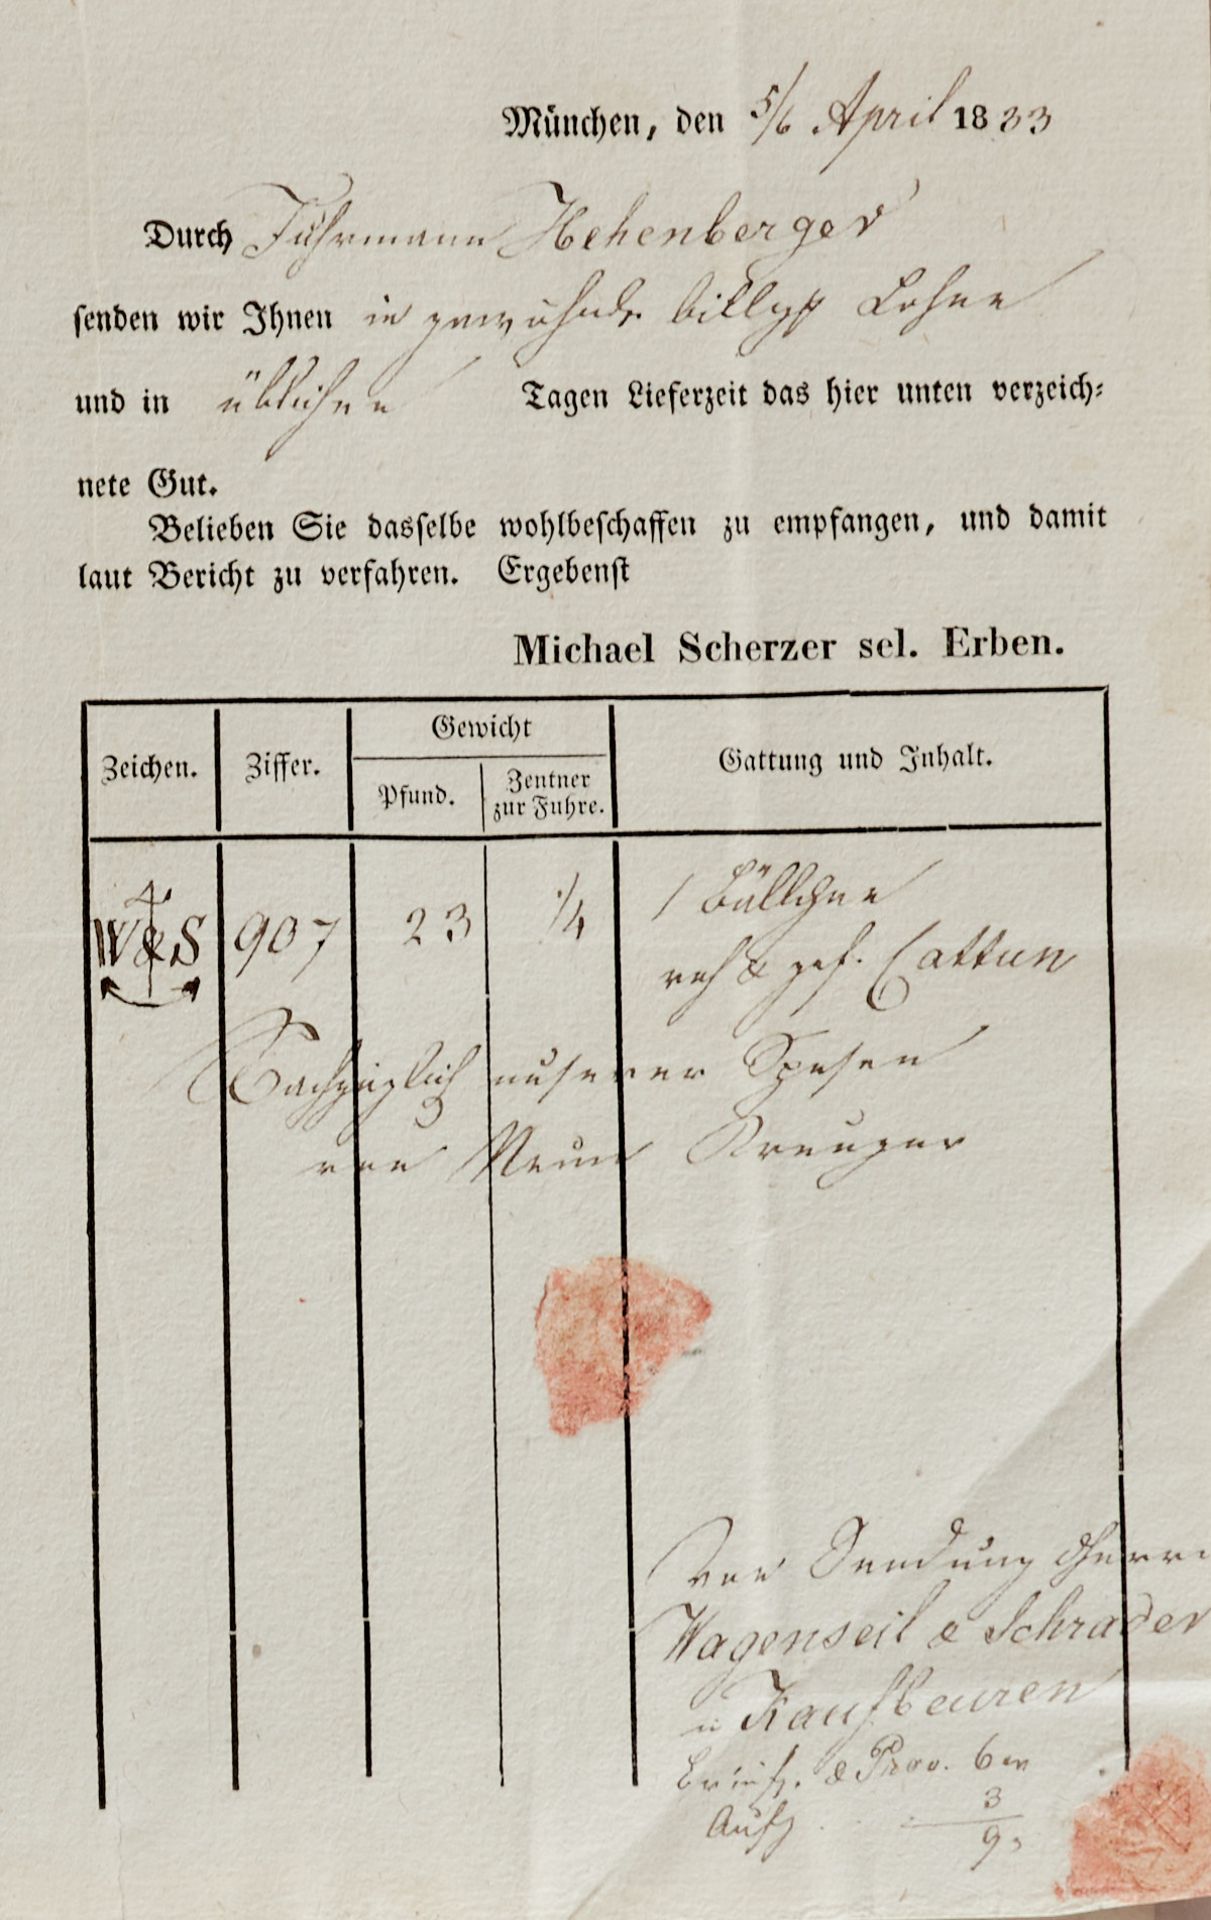 München, den 5/6 April 1833
Durch Fuhrmann Hehenberger
senden wir Ihnen in billigst Lohne
und in üblichen Tagen Lieferzeit das hier unten verzeich=
nete Gut.
Belieben Sie dasselbe wohlbeschaffen zu empfangen, und damit
laut Bericht zu verfahren. Ergebenst
Michael Scherzer sel. Erben.
Zeichen. Ziffer. Gewicht Gattung und Inhalt.
Pfund. Zentner
zur Fuhre.
W&S 907 23 1/4 1 Bällchen
roh & gef. Cattun
unserer Spesen
von Neun Kreuzer
Von Sendung Herrn
Wagenseil & Schrader
in Kaufbeuren
& Prov. 6
3
9